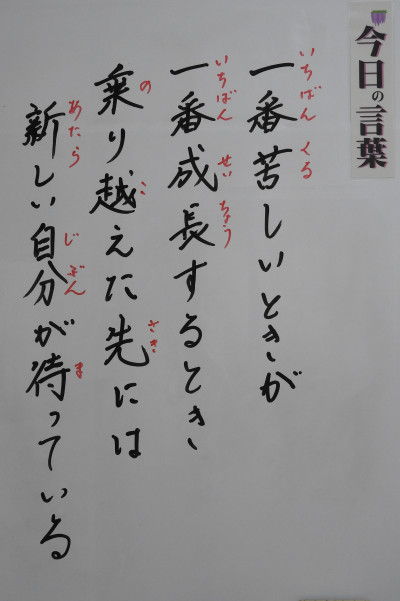 今日の言葉
一番苦しいときが
いちばん くる
一番成長するとき、
いちばん せいちょう
乗り越えた先には
の こ さき
新しい自分が待っている
あたら じぶん ま